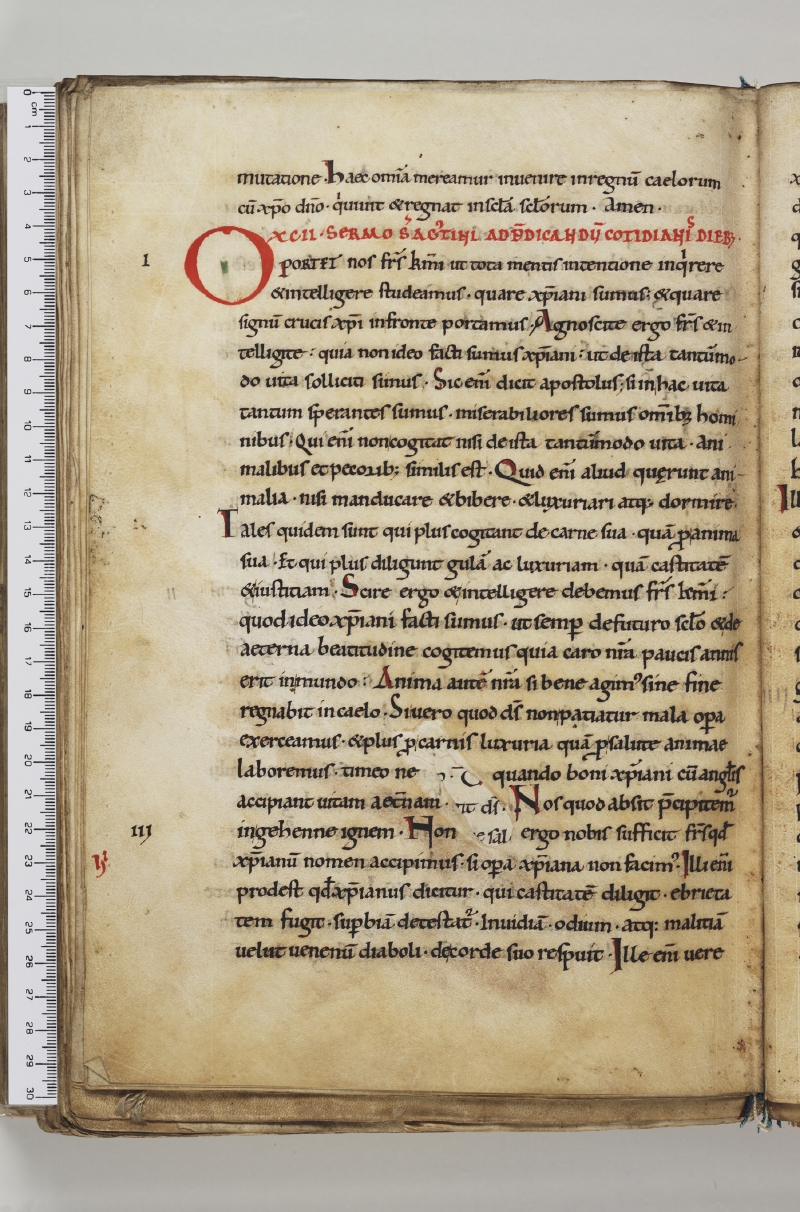 mutatione. haec om̄ia mereamur inuenire inregnū caelorum
cū xp̄o dn̄o. qui uiuit & regnat in scl̄a scl̄orum. Amen.
XCII. SERMO S̄ AGᵒTINI. AD P̄DICANDŪ COTIDIANIˢ DIEB;.
I OPORTET nos fr̄s km̄i ut tota mentis intentione inq̇rere
& intelligere studeamus. quare xp̄iani sumus; & quare
signū crucis xp̄i infronte portamus. Agnoscite ergo fr̄s & in
telligite: quia non ideo facti sumus xp̄iani: ut de ista tantūmo-
do uita solliciti simus. Sic eni͂ dicit apostolus; si in hac uita
tantum sperantes sumus. miserabiliores sumus om̄ib; homi
nibus. Qui eni͂ non cogitat nisi de ista tantūmodo uita. ani
malibus et pecorib; similis est. Quid eni͂ aliud querunt ani-
malia. nisi manducare & bibere. & luxuriari atq; dormire.
Tales quidem sunt qui plus cogitant de carne sua. quā p̲ anima
sua. Et qui plus diligunt gulā ac luxuriam. quā castitatē
& iustitiam. Scire ergo & intelligere debemus fr̄s km̄i:
quod ideo xp̄iani facti sumus. ut semp̲ de futuro scl̄o & de
aeterna beatitudine cogitemus quia caro nr̄a paucis annis
erit in mundo: Anima autē nr̄a si bene agim᾽ sine fine
regnabit in caelo. Si uero quod ds̄ non patiatur mala op̲a
exerceamus. & plus p̲ carnis luxuria quā p̲ salute animae
laboremus. timeo ne quando boni xp̄iani cū angl̄is
accipiant uitam aet̄nam. ds̄. Nos quod absit p̄cipitent᾽
III ingehenne ignem. Non ergo nobis sufficit fr̄s qđ
xp̄ianū nomen accipimus. si op̲a xp̄iana non facim᾽. Illi eni͂
prodest qđ xp̄ianus dicitur. qui castitatē diligit. ebrieta
tem fugit. sup̲biā detestat᾽. Inuidiā. odium. atq; malitiā
uelut uenenū diaboli. de corde suo respuit. Ille eni͂ uere